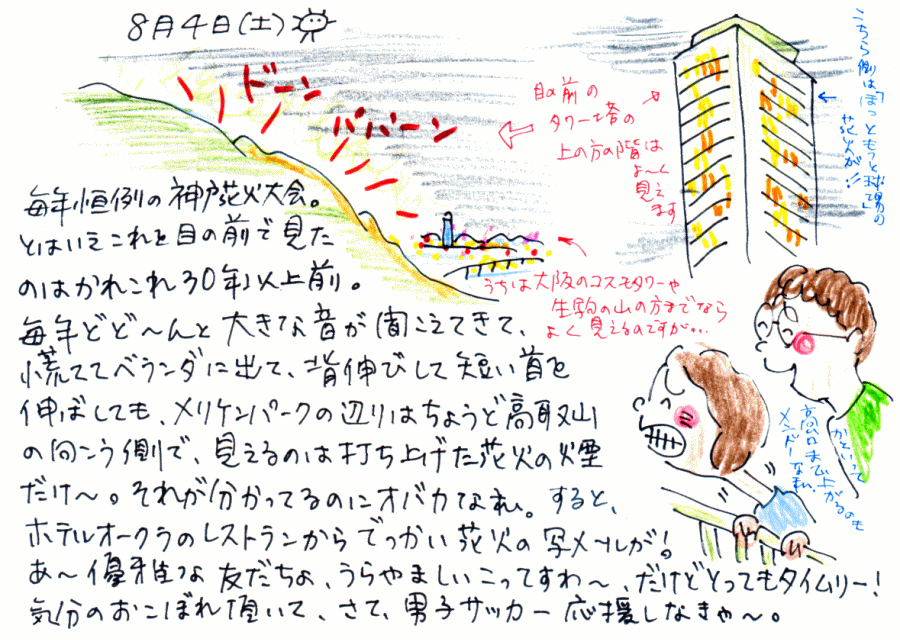 8月4日(土)
ドーン
ババーン
目の前の
タワー塔の
上の方の階は
よ〜く
見え
ます
こちら側は「ほっともっと球場の
花火が!!
うちは大阪のコスモタワーや
生駒の山の方までなら
よく見えるのですが...
毎年恒例の神戸花火大会。
とはいえこれを目の前で見た
のはかれこれ30年以上前。
毎年どど〜んと大きな音が聞こえてきて、
慌ててベランダに出て、背伸びして短い首を
伸ばしても、メリケンパークの辺りはちょうど高取山
の向こう側で、見えるのは打ち上げた花火の煙
だけ〜。それが分かってるのにオバカなわれ。すると、
ホテルオークラのレストランからでっかい花火の写メールが!
あ〜優雅な友だちょ、うらやましいこってすわ〜、だけどとってもタイムリー!
気分のおこぼれ頂いて、さて、男子サッカー応援しなきゃ〜。
かといって
高台まで上がるのも
メンドーな私